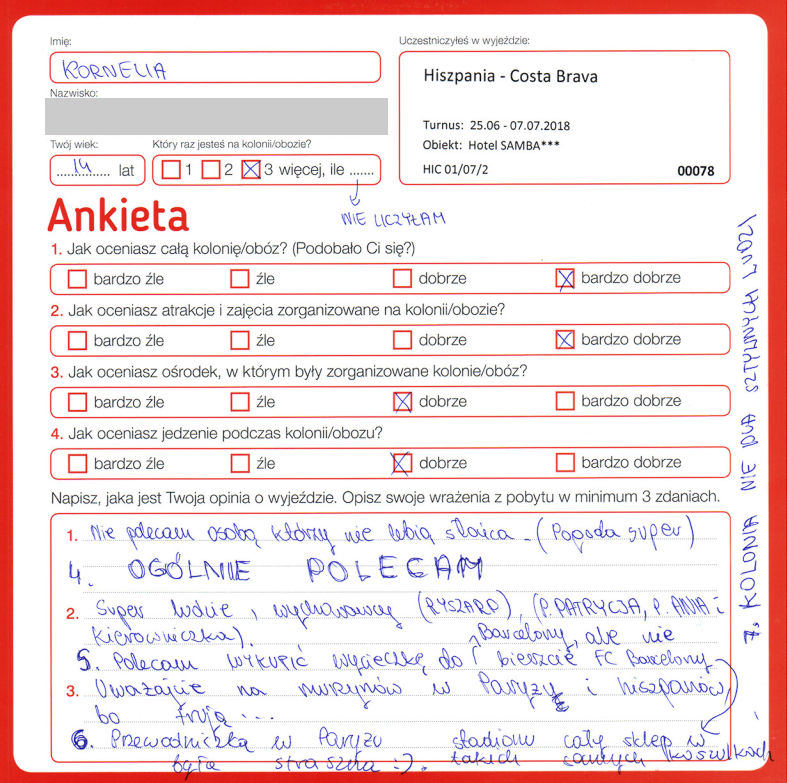 Imię:
KORNELIA
Nazwisko:
Twój wiek:
14 lat
Który raz jesteś na kolonii/obozie?
1 2 3 więcej, ile .......
NIE LICZYŁAM
Uczestniczyłeś w wyjeździe:
Hiszpania - Costa Brava
Turnus: 25.06 - 07.07.2018
Obiekt: Hotel SAMBA***
HIC 01/07/2 00078
Ankieta
1. Jak oceniasz całą kolonię/obóz? (Podobało Ci się?)
bardzo źle źle dobrze bardzo dobrze
2. Jak oceniasz atrakcje i zajęcia zorganizowane na kolonii/obozie?
bardzo źle źle dobrze bardzo dobrze
3. Jak oceniasz ośrodek, w którym były zorganizowane kolonie/obóz?
bardzo źle źle dobrze bardzo dobrze
4. Jak oceniasz jedzenie podczas kolonii/obozu?
bardzo źle źle dobrze bardzo dobrze
Napisz, jaka jest Twoja opinia o wyjeździe. Opisz swoje wrażenia z pobytu w minimum 3 zdaniach.
1. Nie polecam osobą którzy nie lubią słońca - (Pogoda super)
4. OGÓLNIE POLECAM
2. Super ludzie, wychowawcy (RYSZARD), (P. PATRYCJA, P. ANIA i
Kierowniczka).
5. Polecam wykupić wycieczkę do Barcelony, ale nie
bierzcie FC Barcelony
3. Uważajcie na murzynów w Paryżu i hiszpanów,
bo trują ...
6. Przewodniczka w Paryżu
była straszna :).
stadionu cały sklep w
takich samych koszulkach
7. KOLONIA NIE DLA SZTYWNYCH LUDZI